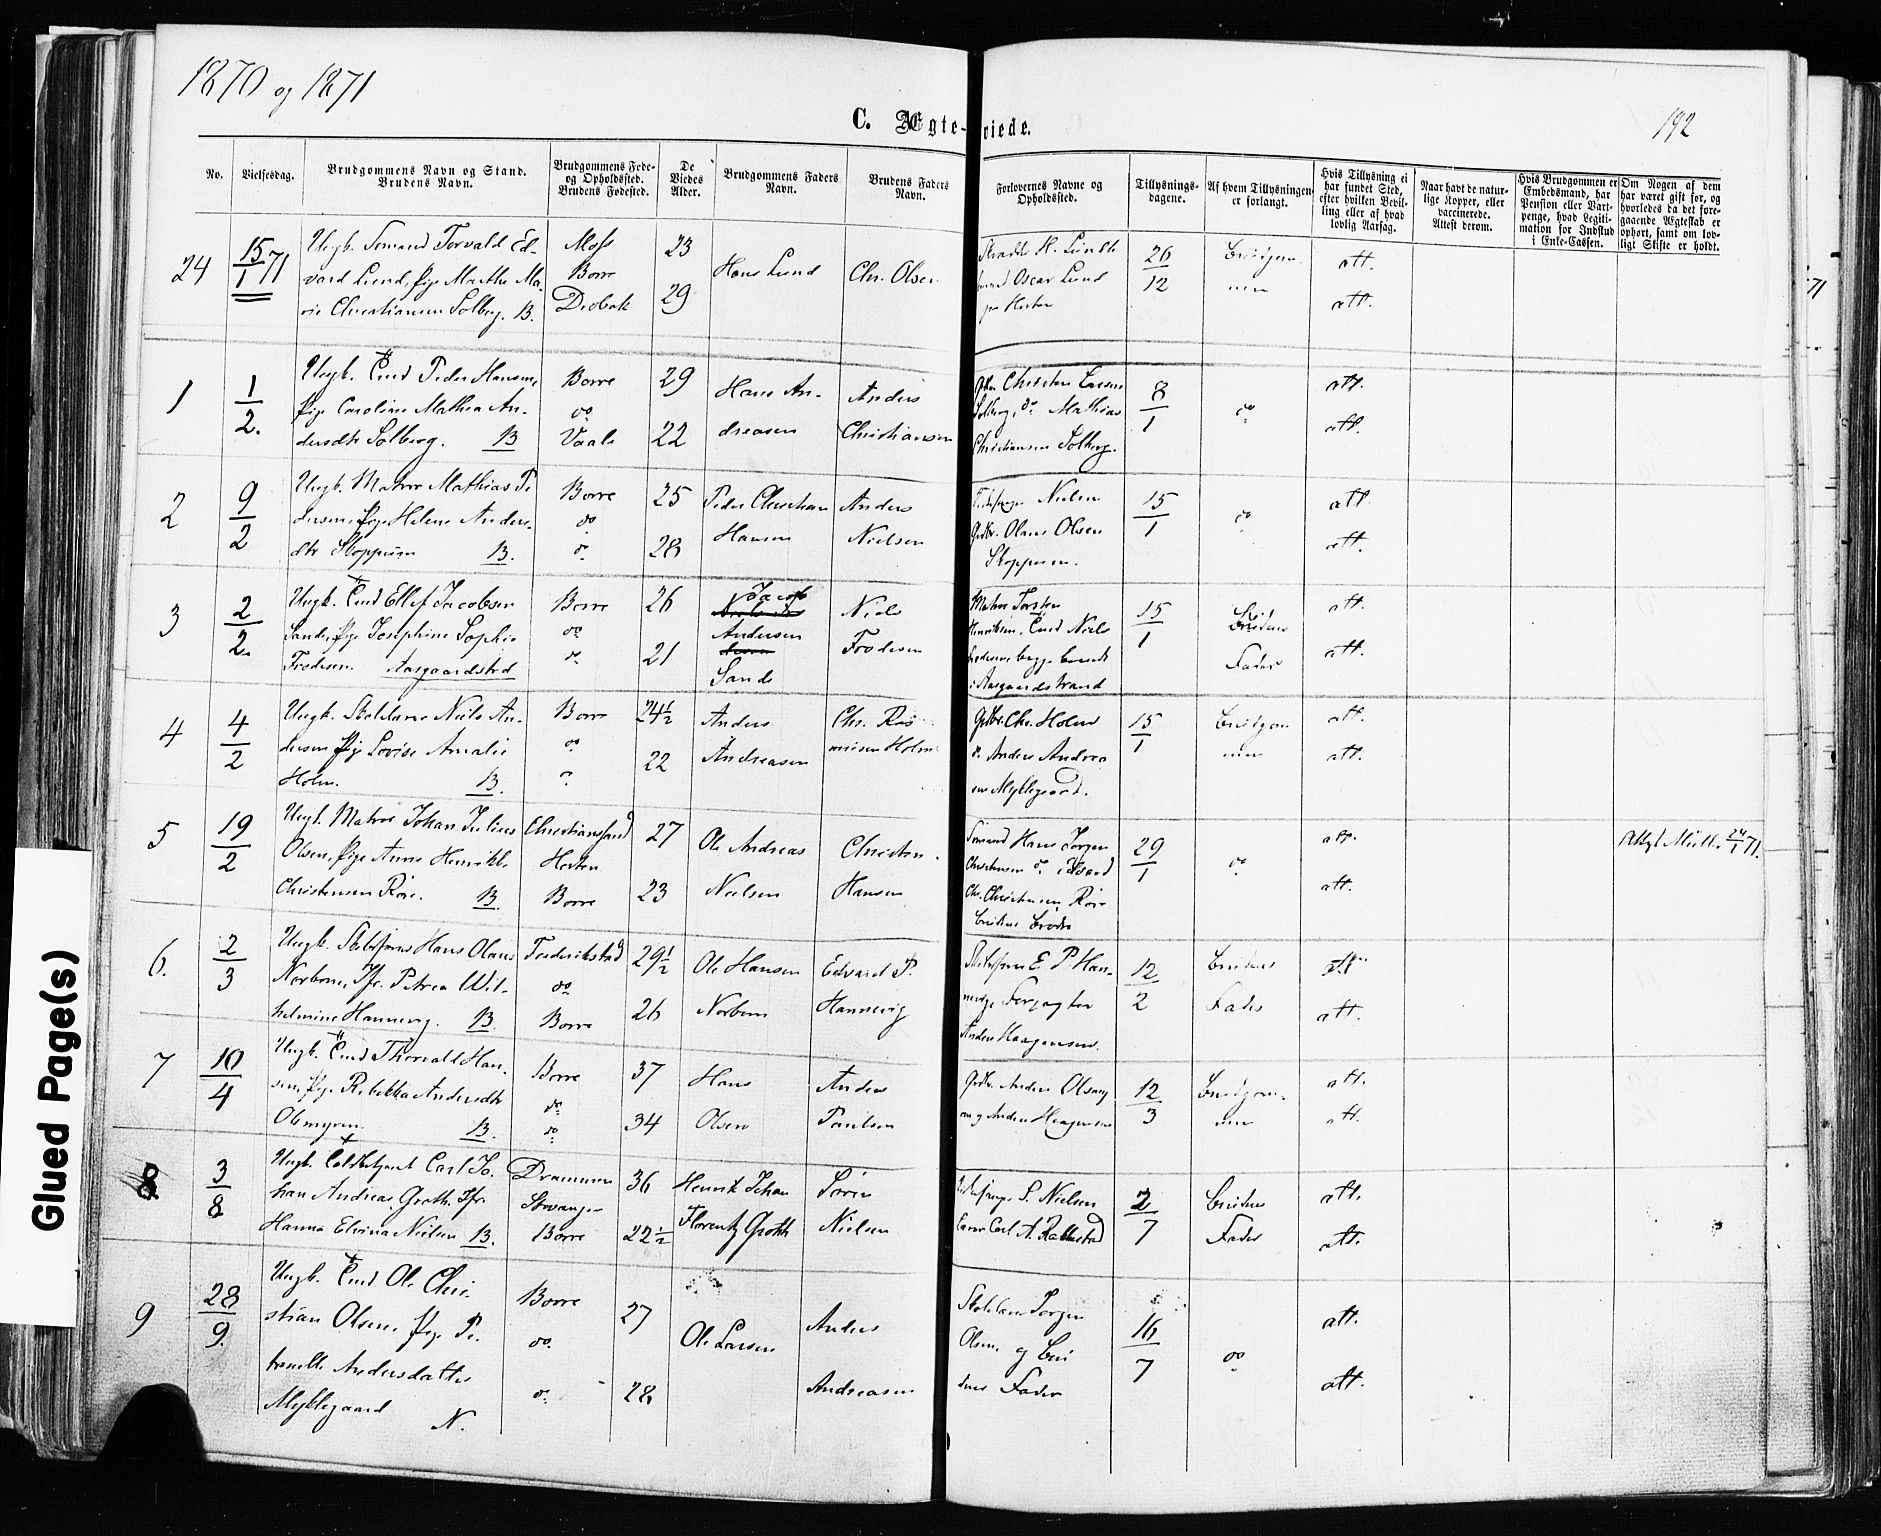 1870 og 1871
192
C. Ægte-viede.
No.
Vielsesdag.
Brudgommens Navn og Stand.
Brudens Navn.
Brudgommens Føde-
og Opholdssted.
Brudens Fødested.
De
Viedes
Alder.
Brudgommens Faders
Navn.
Brudens Faders
Navn.
Forlovernes Navne og
Opholdssted.
Tillysnings-
dagene.
Af hvem Tillysningen
er forlangt.
Hvis Tillysning ei
har fundet Sted,
efter hvilken Bevil-
ling eller af hvad
lovlig Aarsag.
Naar havt de natur-
lige Kopper, eller
vaccinerede.
Attest derom.
Hvis Brudgommen er
Embedsmand, har
Pension eller Vart-
penge, hvad Legiti-
mation for Indskud
i Enke-Cassen.
Om Nogen af dem
har været gift før, og
hvorledes da det fore-
gaaende Ægteskab er
ophørt, samt om lov-
ligt Skifte er holdt.
24 15/1 71 Ungk. Sømand Torvald Ed-
vard Lund, Pige Marthe Ma-
rie Christiansen Solberg. B.
Moss
Borre
Drøbak
23
29
Hans Lund
Chr. Olsen
H. Lund
Oscar Lund
Horten
26/12
Brudgom-
men
att.
att.
1 1/2. Ungk. Peder Hansen,
Pige Caroline Mathea An-
dersdtr Solberg. B
Borre
do
Vaale
29
22
Hans An-
dreasen
Anders
Christiansen
Christen Larsen
Solberg, do Mathias
Christiansen Solberg.
8/1
do
att.
att.
2 9/2 Ungk. Matros Mathias Pe
dersen, Pige Helene Anders-
dtr Skoppum B.
Borre
do
do
25
28
Peder Christian
Hansen
Anders
Nielsen
Nielsen
Gdbr. Olaus Olsen
Skoppum.
15/1
do
att.
att.
3 2/2. Ungk. Ellef Jacobsen
Sande, Pige Josephine Sophie
Frodesen. Aasgaardstrd
Borre
do
do
26
21
Jacob
Andersen
Sande
Niels
Frodesen
Matros Torsten
Henriksen, Niels
Frodesen begge boende
i Aasgaardstrand
15/1
Brudens
Fader
att.
att.
4 4/2 Ungk. Skolelærer Niels An-
dersen Pige Lovise Amalie
Holm. B.
Borre
do
do
24½
22
Anders
Andreasen
Chr. Ras
mussen Holm
Gdbr. Chr. Holm
do Anders Andrea
sen Myklegaard.
15/1
Brudgom
men
att.
att.
5 19/2 Ungk. Matros Johan Julius
Olsen, Pige Anne Henrikke
Christensen Røre. B.
Christianssand
Horten
Borre
27
23
Ole Andreas
Nielsen
Christen
Hansen
Sømand Hans Jørgen
Christensen
Chr. Christensen Røre
Brudens Broder
29/1
do
att.
att.
24/1 71.
6. 2/3 Ungk. Skibsfører Hans Olaus
Norbom, Jfr. Petrea Wil-
helmine Hannevig. B.
Frederikstad
do
Borre
29½
26
Ole Hansen
Norbom
Edvard P.
Hannevig
Skibsfører E P Han-
nevig Forpagter
Anders Haagensen.
12/2
Brudens
Fader
att.
att.
7 10/4 Ungk. Thorvald Han-
sen, Pige Rebekka Andersdtr
Olsmyren. B.
Borre
do
do
37
34
Hans
Olsen
Anders
Paulsen
Gdbr. Anders Olsmyr
en og Anders Haagensen
12/3
Brudgom-
men
att.
att.
8 3/8 Ungk. Carl Jo-
han Andreas Groth, Jfr.
Hanna Elvina Nielsen B.
Drammen
Stavanger
Borre
36
22½
Henrik Johan
Florentz Groth
Søren
Nielsen
S. Nielsen
Carl A. Rallestad
2/7
Brudens
Fader
att.
att.
9 28/9. Ungk. Ole Chri-
stian Olsen, Pige Pe-
tronelle Andersdatter
Myklegaard N.
Borre
do.
do
27
28
Ole Larsen
Anders
Andreasen
Skolelærer Jørgen
Olsen og Bru
dens Fader
16/7
do
att.
att.
Glued Page(s)